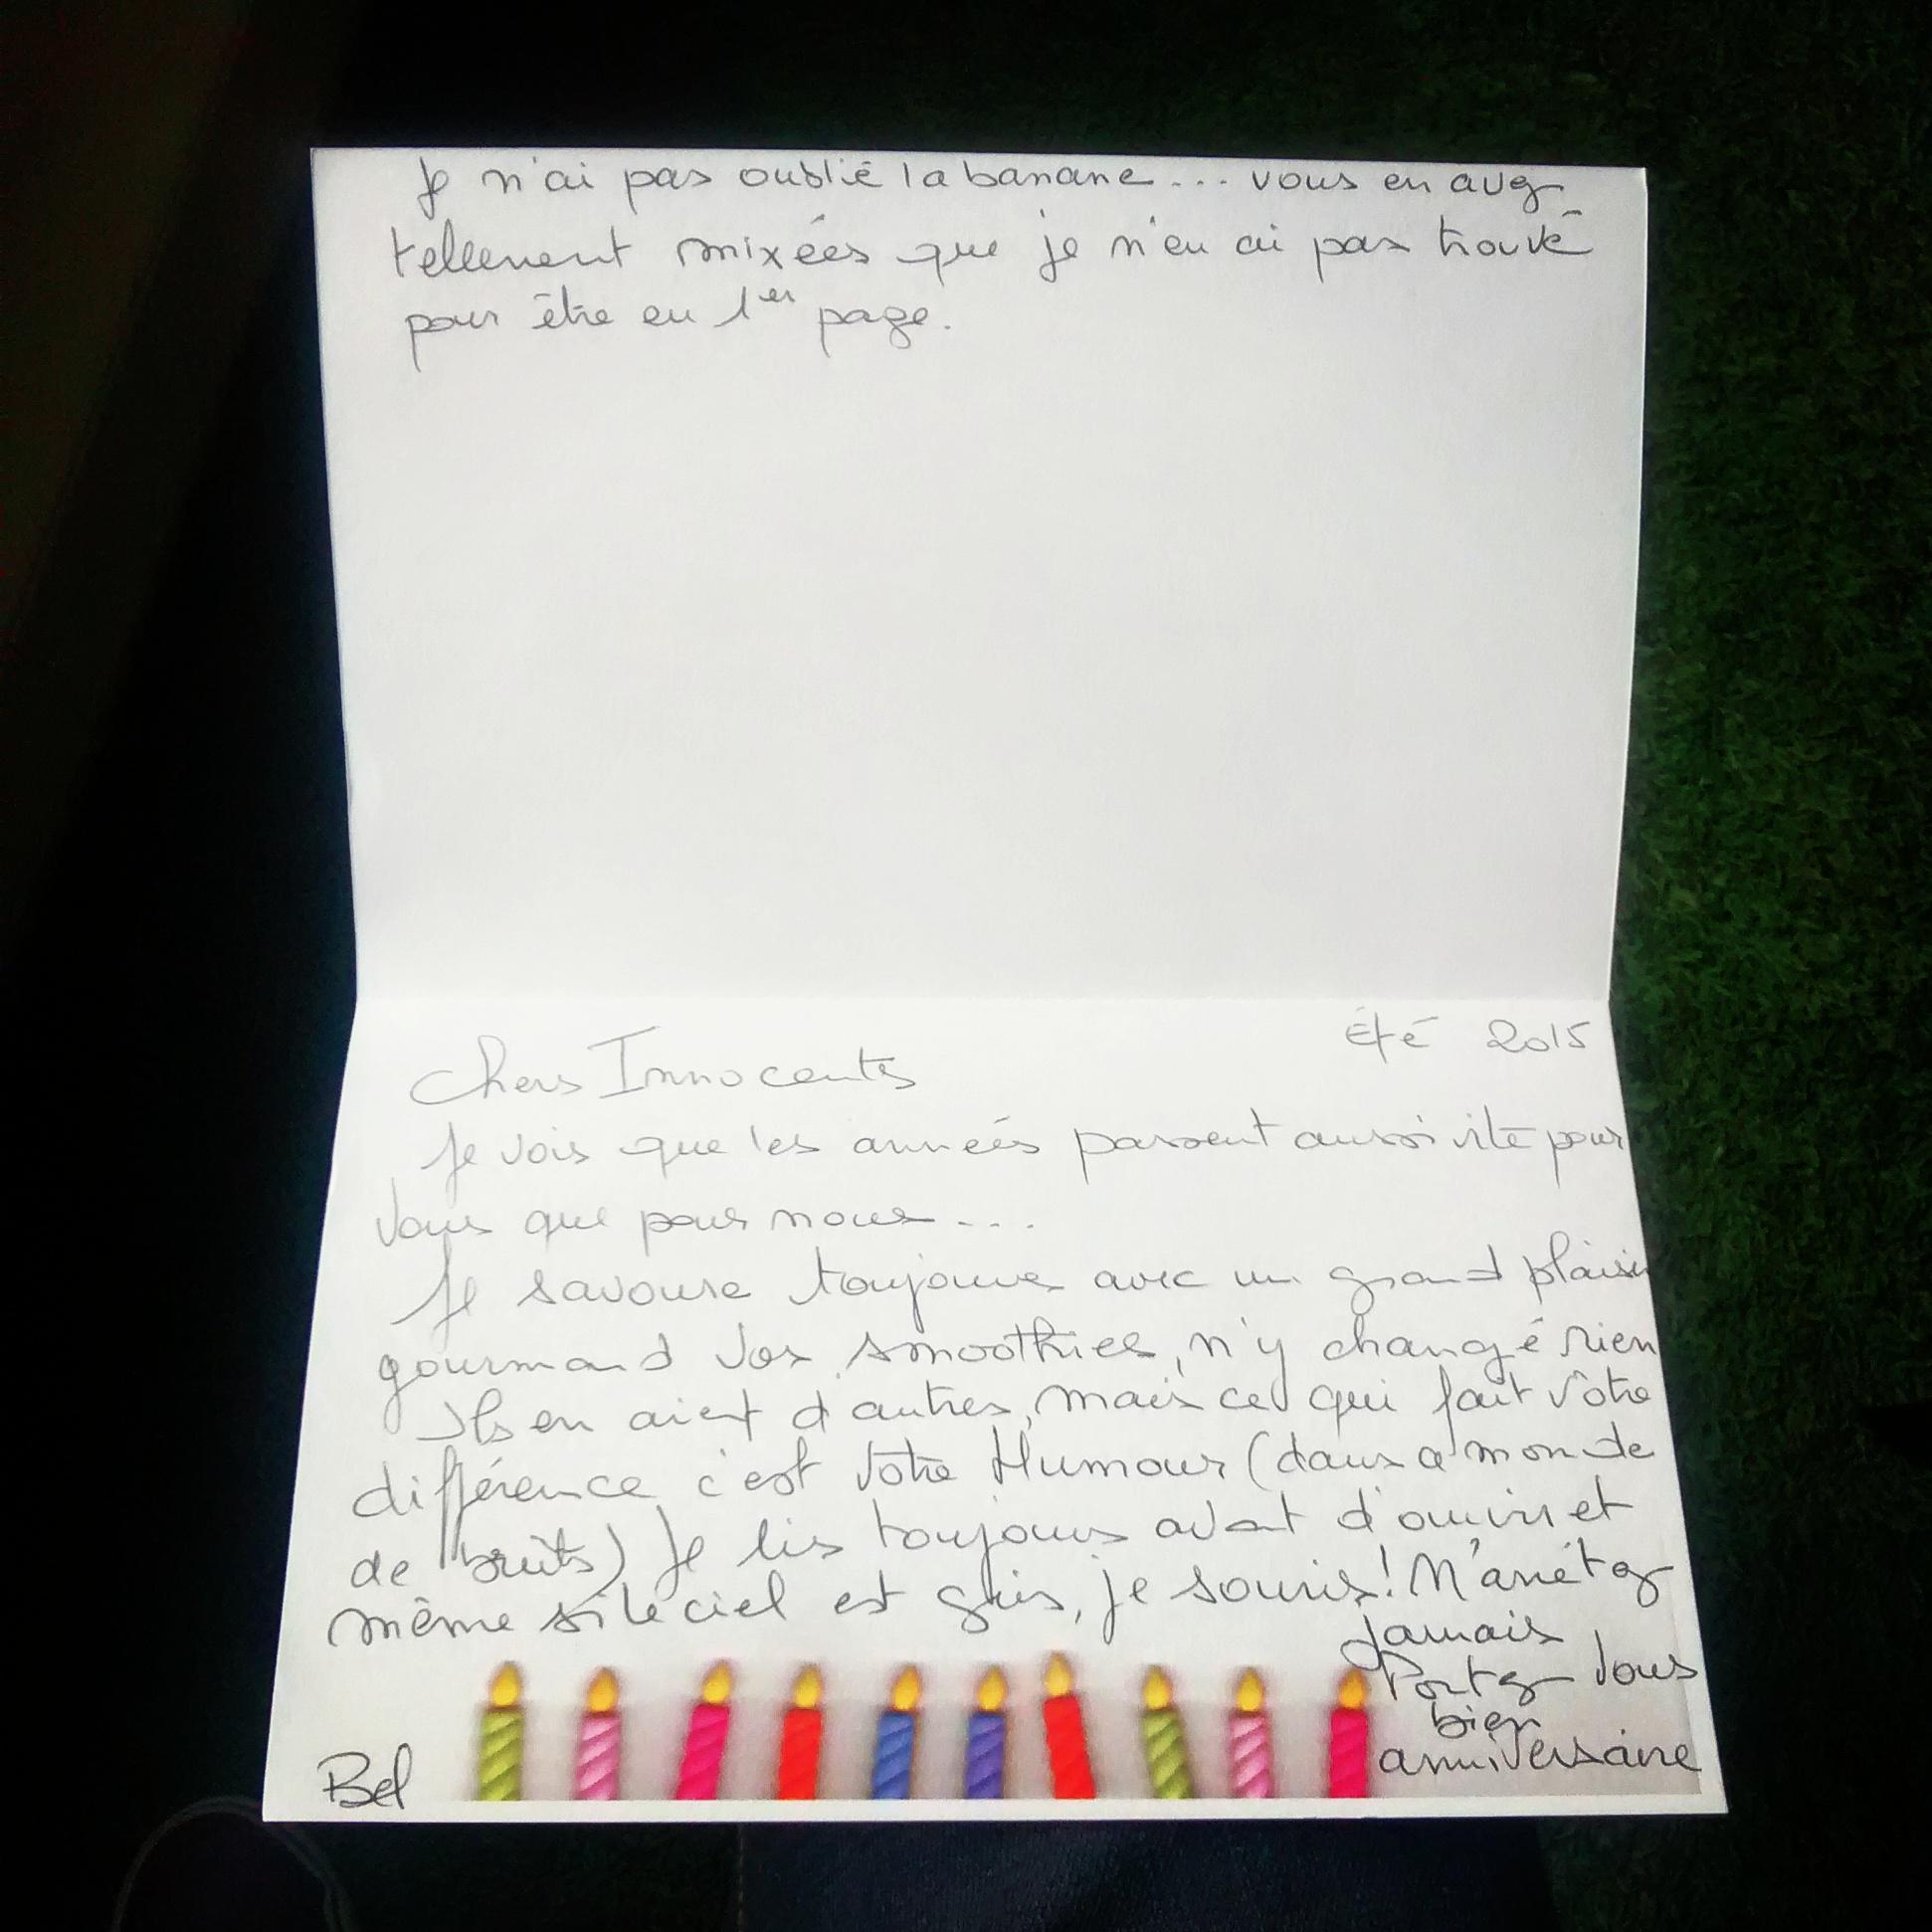 Je n'ai pas oublié la banane... vous en avez
tellement mixées que je n'en ai pas trouvé
pour être en 1er page.
Été 2015
Chers Innocents
Je vois que les années passent aussi vite pour
vous que pour nous...
Je savoure toujours avec un grand plaisir
gourmand vos smoothies, n'y changé rien
Ils en aient d'autres, mais ce qui fait vôtre
différence c'est vôtre Humour (dans ce monde
de bruits) Je lis toujours avant d'ouvrir et
même si le ciel est gris, je souris! N'arrêtez
jamais
Portez vous
bien
anniversaire
Bel